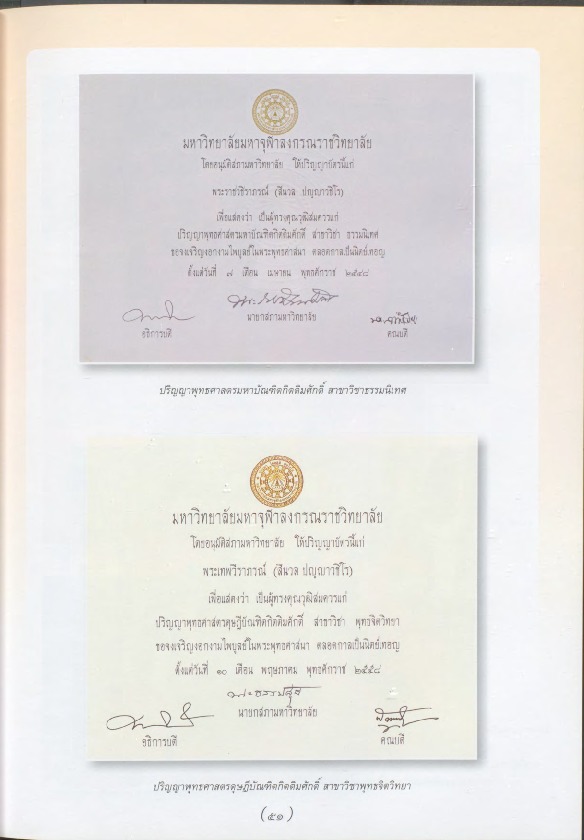 มหาวิทยาลัยมหาจุฬาลงกรณราชวิทยาลัย
โดยอนุมัติสภามหาวิทยาลัย ให้ปริญญาบัตรนี้แก่
พระราชวชิราภรณ์ (สีนวล ปญฺญาวชิโร)
เพื่อแสดงว่า เป็นผู้ทรงคุณวุฒิสมควรแก่
ปริญญาพุทธศาสตรมหาบัณฑิตกิตติมศักดิ์ สาขาวิชา ธรรมนิเทศ
ขอจงเจริญงอกงามไพบูลย์ในพระพุทธศาสนา ตลอดกาลเป็นนิตย์เทอญ
ตั้งแต่วันที่ ๗ เดือน เมษายน พุทธศักราช ๒๕๔๘
นายกสภามหาวิทยาลัย
อธิการบดี
คณบดี
ปริญญาพุทธศาสตรมหาบัณฑิตกิตติมศักดิ์ สาขาวิชาธรรมนิเทศ
มหาวิทยาลัยมหาจุฬาลงกรณราชวิทยาลัย
โดยอนุมัติสภามหาวิทยาลัย ให้ปริญญาบัตรนี้แก่
พระเทพวีราภรณ์ (สีนวล ปญฺญาวชิโร)
เพื่อแสดงว่า เป็นผู้ทรงคุณวุฒิสมควรแก่
ปริญญาพุทธศาสตรดุษฎีบัณฑิตกิตติมศักดิ์ สาขาวิชา พุทธจิตวิทยา
ขอจงเจริญงอกงามไพบูลย์ในพระพุทธศาสนา ตลอดกาลเป็นนิตย์เทอญ
ตั้งแต่วันที่ ๑๐ เดือน พฤษภาคม พุทธศักราช ๒๕๕๘
นายกสภามหาวิทยาลัย
อธิการบดี
คณบดี
ปริญญาพุทธศาสตรดุษฎีบัณฑิตกิตติมศักดิ์ สาขาวิชาพุทธจิตวิทยา
(๕๑)